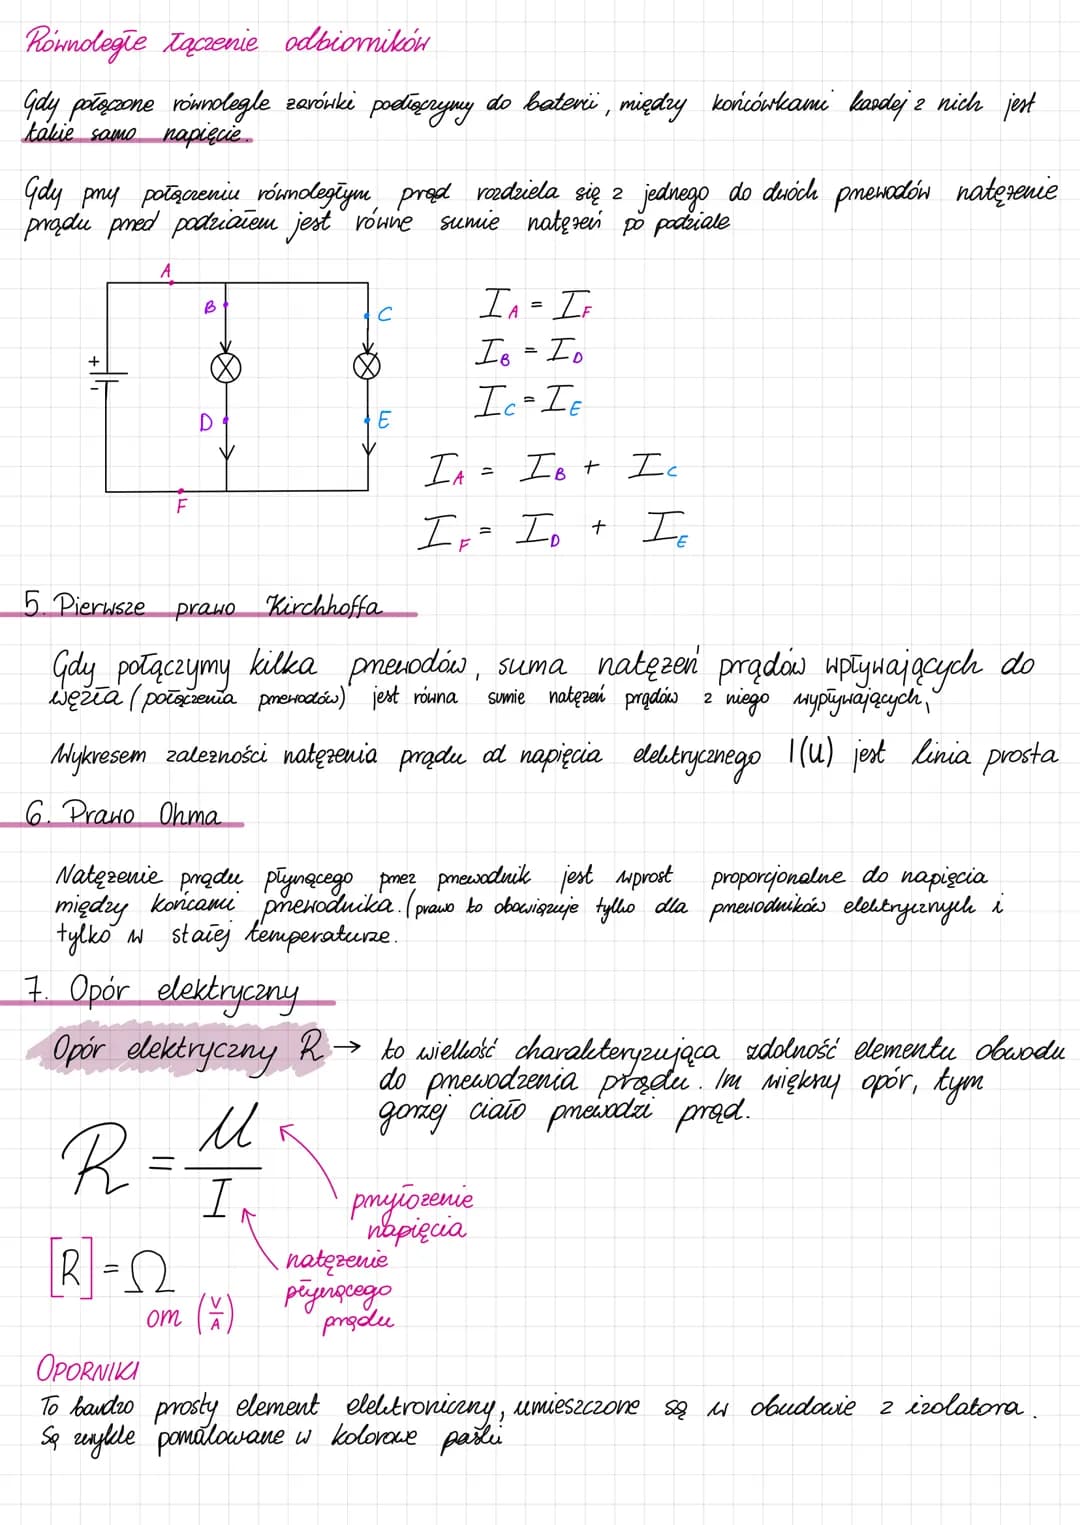 Równoległe łączenie odbiorników
Gdy połączone równolegle żarówki podłączymy do baterii, między końcówkami każdej z nich jest
takie samo napięcie.
Gdy przy połączeniu równoległym prąd rozdziela się z jednego do dwóch przewodów natężenie
prądu przed podziałem jest równe sumie natężeń po podziale
A
B
C
+
-
D
E
F
I_A = I_F
I_B = I_D
I_C = I_E
I_A = I_B + I_C
I_F = I_D + I_E
5. Pierwsze prawo Kirchhoffa
Gdy połączymy kilka przewodów, suma natężeń prądów wpływających do
węzła (połączenia przewodów) jest równa sumie natężeń prądów z niego wypływających,
Wykresem zależności natężenia prądu od napięcia elektrycznego I(U) jest linia prosta
6. Prawo Ohma
Natężenie prądu płynącego przez przewodnik jest wprost proporcjonalne do napięcia
między końcami przewodnika. (prawo to obowiązuje tylko dla przewodników elektrycznych i
tylko w stałej temperaturze.
7. Opór elektryczny
Opór elektryczny R → to wielkość charakteryzująca zdolność elementu obwodu
do przewodzenia prądu. Im większy opór, tym
gorzej ciało przewodzi prąd.
R = U/I
przyłożenie
napięcia
natężenie
płynącego
prądu
[R] = Ω
om (V/A)
OPORNIKI
To bardzo prosty element elektroniczny, umieszczone są w obudowie z izolatora.
Są zwykle pomalowane w kolorowe paski